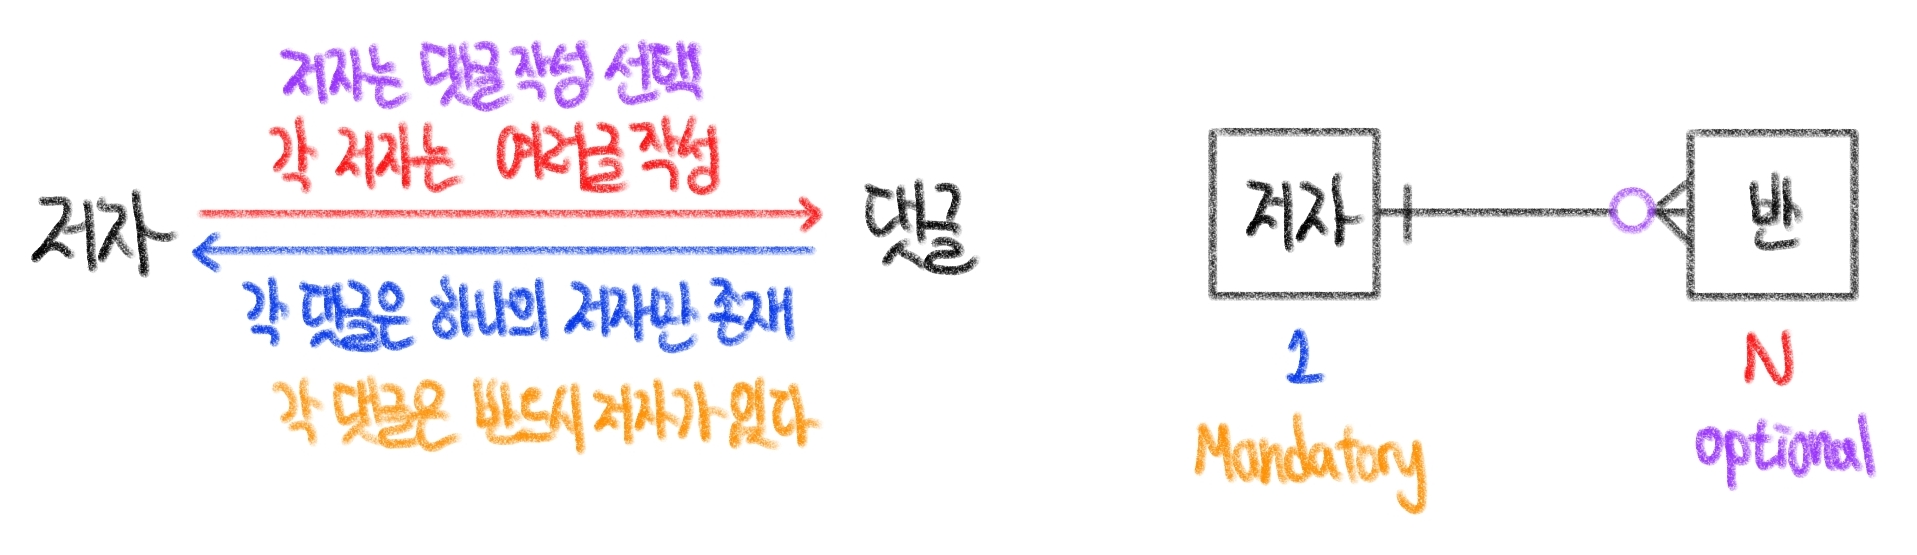 저자는 댓글작성 선택
각 저자는 여러글 작성
저자
댓글
각 댓글은 하나의 저자만 존재
각 댓글은 반드시 저자가 있다
저자
반
1
N
Mandatory
optional